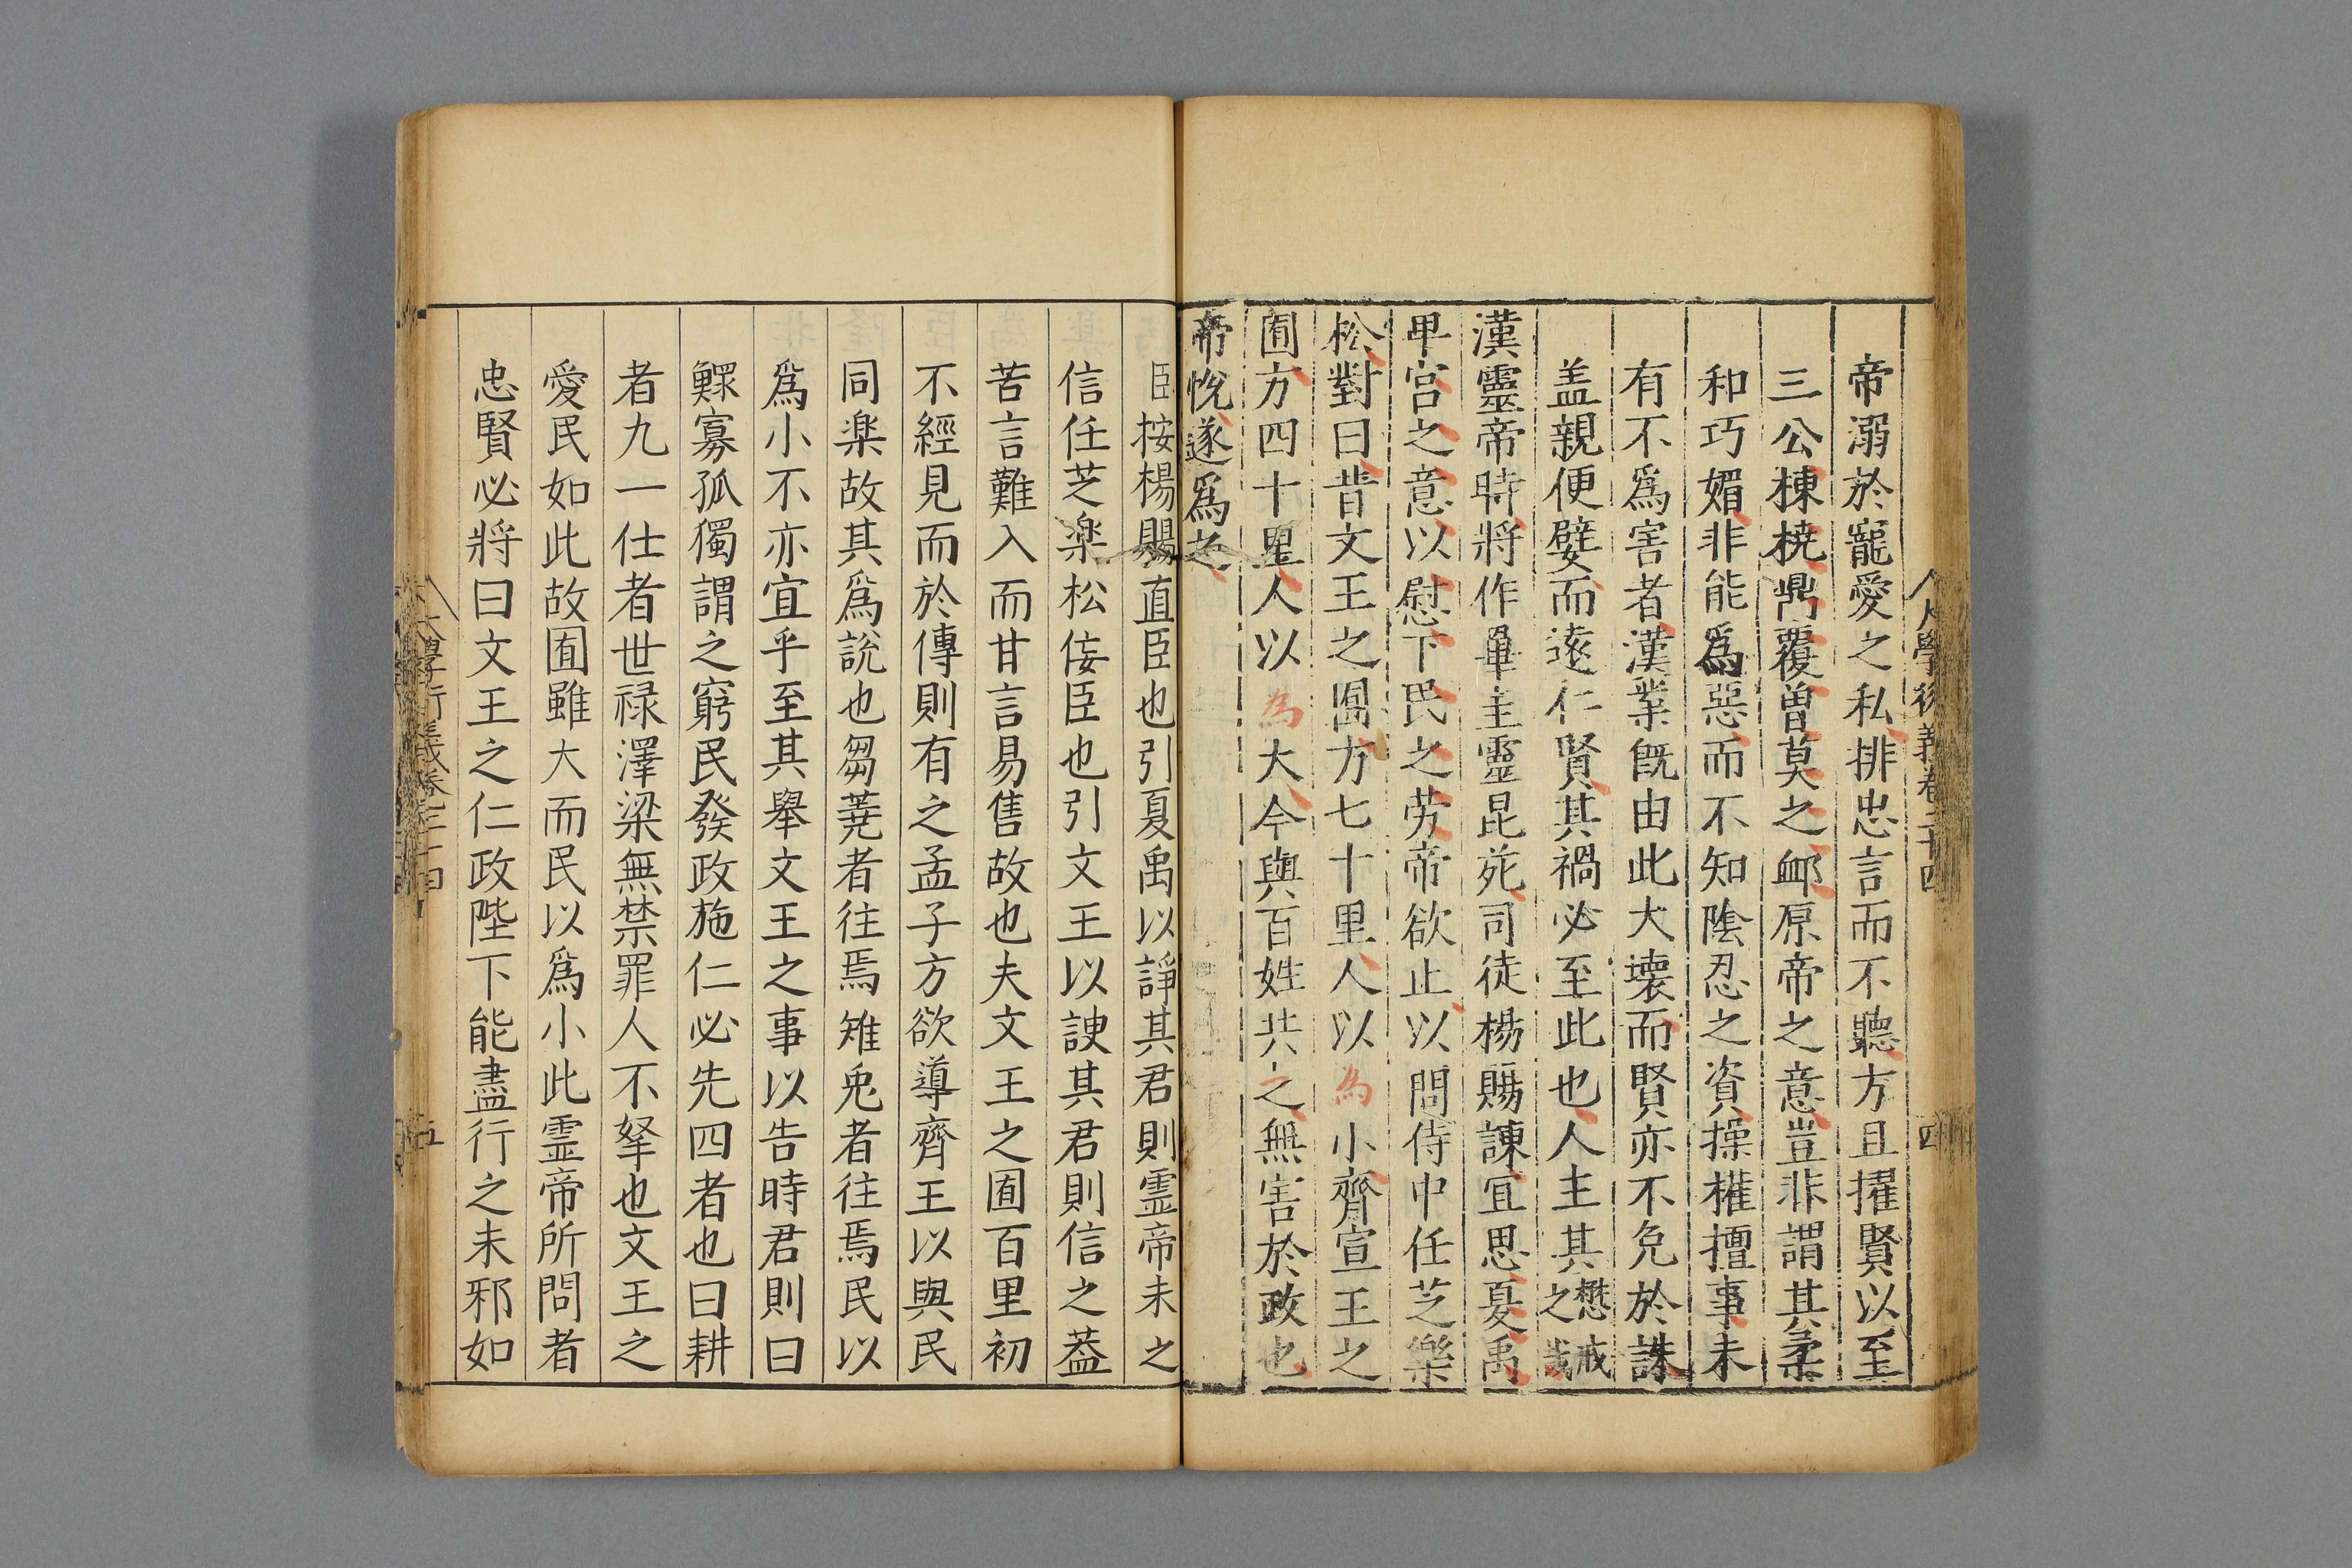 帝溺於寵愛之私排忠言而不聽方且擢賢以至
三公棟橈鼎覆曽莫之䘏原帝之意豈非謂其柔
和巧媚非能爲惡而不知陰忍之資操權擅事未
有不爲害者漢業旣由此大壊而賢亦不免於誅
盖親便嬖而遠仁賢其禍必至此也人主其懋戒之
漢靈帝時將作畢圭靈昆苑司徒楊賜諫宜思夏禹
卑宫之意以慰下民之劳帝欲止以問侍中任芝樂
松對曰昔文王之囿方七十里人以為小齊宣王之
囿方四十里人以為大今與百姓共之無害於政也
帝悅遂爲之
臣按楊賜直臣也引夏禹以諍其君則霊帝未之
信任芝楽松侫臣也引文王以諛其君則信之葢
苦言難入而甘言易售故也夫文王之囿百里初
不經見而於傳則有之孟子方欲導齊王以與民
同楽故其爲説也芻蕘者往焉雉兎者往焉民以
爲小不亦宜乎至其舉文王之事以告時君則曰
鰥寡孤獨謂之窮民發政施仁必先四者也曰耕
者九一仕者世禄澤梁無禁罪人不孥也文王之
愛民如此故囿雖大而民以爲小此霊帝所問者
忠賢必將曰文王之仁政陛下能盡行之未邪如
大學衍義卷三十四
五